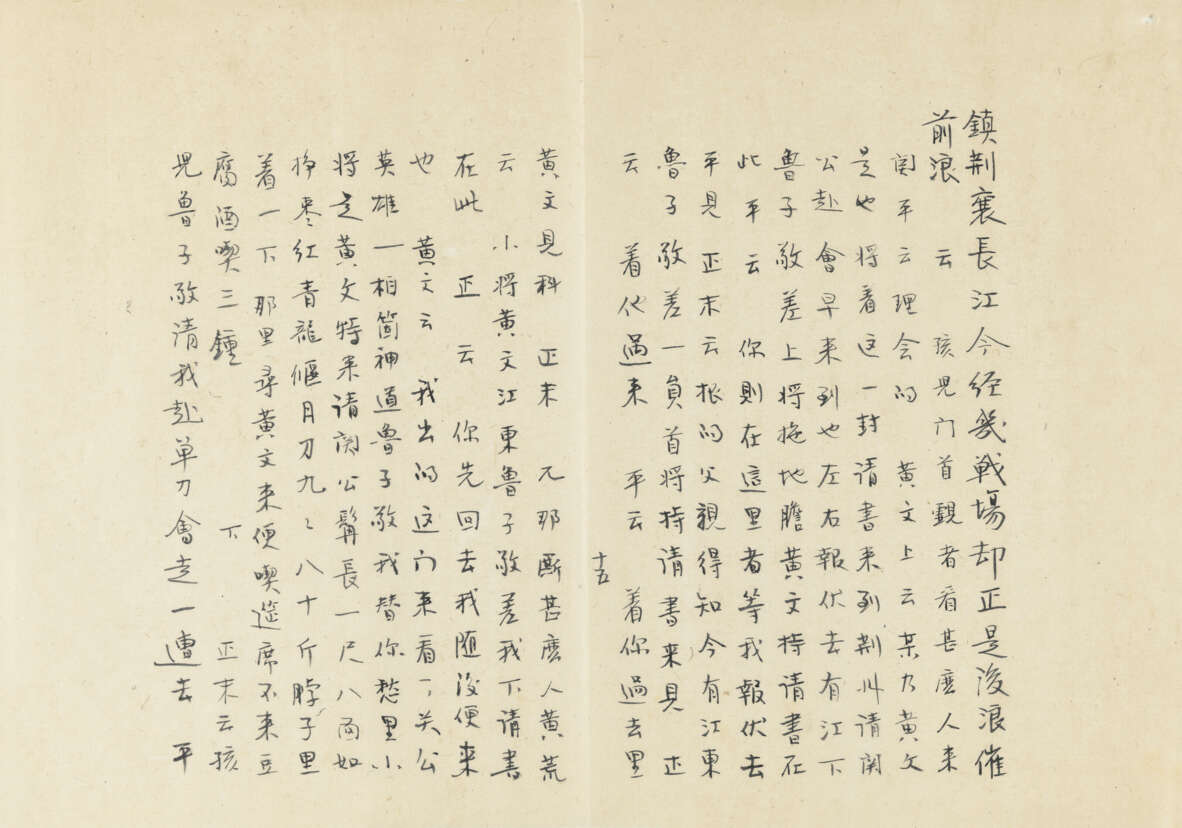 鎮荆襄長江今经幾戦場却正是後浪催
前浪　云　孩児门首觀者看甚麽人来
関平云理会的　黄文上云某乃黄文
是也将着这一封请書来到荆州请関
公赴會早来到也左右報伏去有江下
魯子敬差上将拖地膽黄文持请書在
此平云　你則在這里者等我報伏去
平見正末云报的父親得知今有江東
魯子敬差一員首将持请書来見　正
云　着他過来　平云　着你過去里
十五
黄文見科　正末　兀那厮甚麽人黄荒
云　小将黄文江東魯子敬差我下请書
在此　正云　你先回去我随後便来
也　黄文云　我出的这门来看了关公
英雄一相箇神道魯子敬我替你愁里小
将是黄文特来请関公髯長一尺八面如
挣枣红青龍偃月刀九〻八十斤脖子里
着一下那里尋黄文来便喫筵席不来豆
腐酒喫三鍾　下　正末云孩
児魯子敬请我赴单刀會走一遭去　平